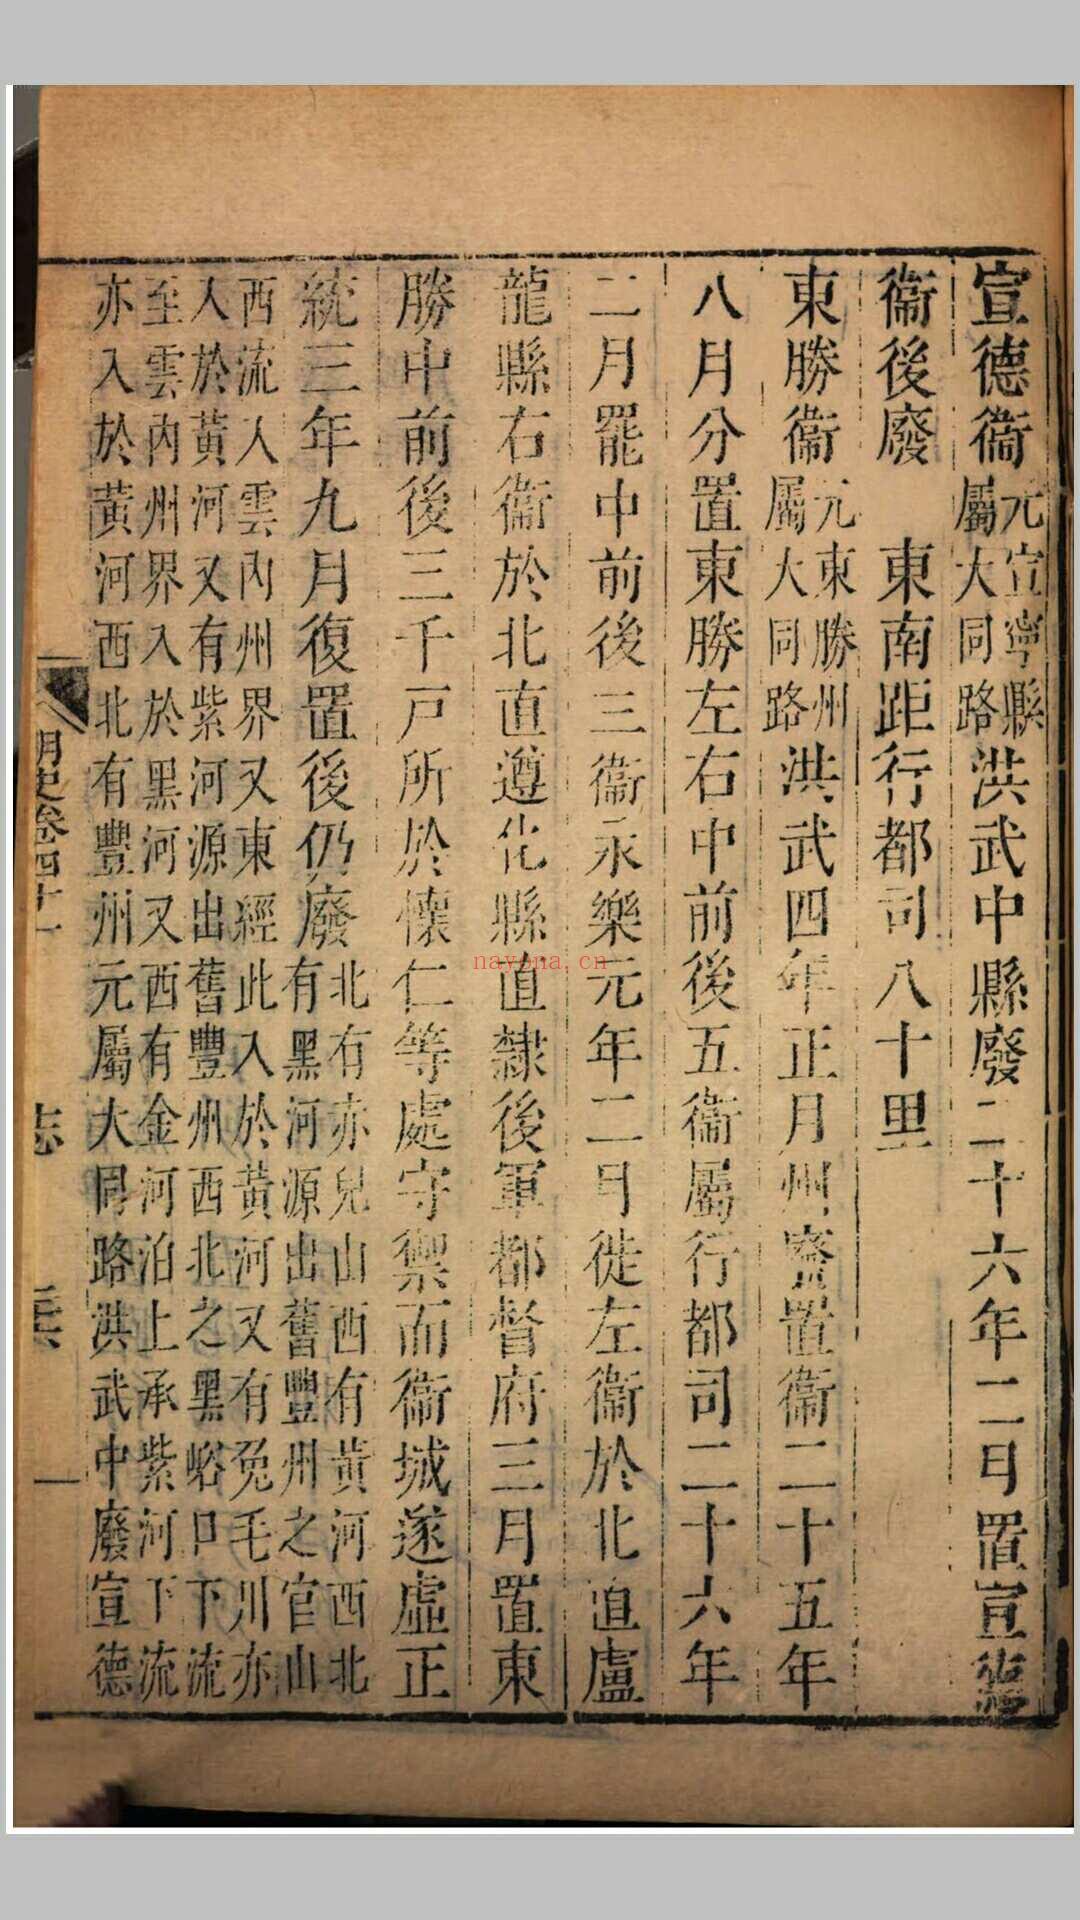 宣德衞元宣寧縣屬大同路洪武中縣廢二十六年二月置宣德
衞後廢　東南距行都司八十里
東勝衞元東勝州屬大同路洪武四年正月州廢置衞二十五年
八月分置東勝左右中前後五衞屬行都司二十六年
二月罷中前後三衞永樂元年二月徙左衞於北直盧
龍縣右衞於北直遵化縣直隸後軍都督府三月置東
勝中前後三千戸所於懷仁等處守禦而衞城遂虛正
統三年九月復置後仍廢北有赤兒山西有黃河西北
有黑河源出舊豐州之官山
西流入雲內州界又東經此入於黃河又有兔毛川亦
入於黃河又有紫河源出舊豐州西北之黑峪口下流
至雲內州界入於黑河又西有金河泊上承紫河下流
亦入於黃河西北有豐州元屬大同路洪武中廢宣德
明史卷四十一
志
nayona.cn